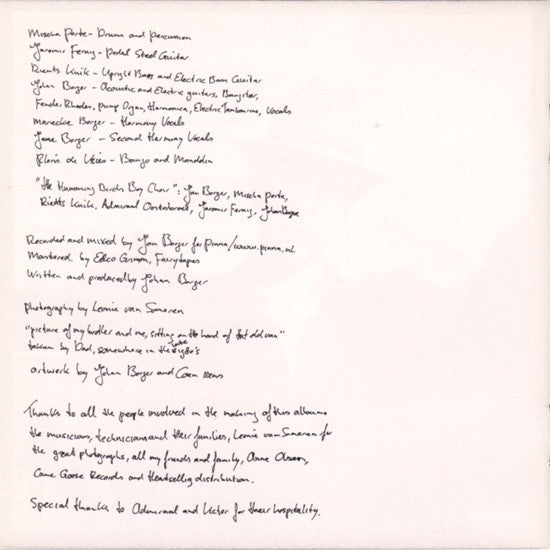 Mischa Porte - Drums and percussion
Jaromir Ferny - Pedal Steel Guitar
Rients - Upright Bass and Electric Bass Guitar
Johan Borger - Acoustic and Electric guitars, Banjitar,
Fender Rhodes, Pump Organ, Harmonica, Electric Tambourine, Vocals
Mariecke Borger - Harmony Vocals
Jane Borger - Second Harmony Vocals
Floris de Vries - Banjo and Mandolin
"The Humming Birds Boy Choir": Jan Borger, Mischa Porte,
Rients, Admiraal, Jaromir Ferny, Johan Borger
Recorded and mixed by Jan Borger for Pinna/www.pinna.nl
Mastered by Edco Grimm, Fairytapes
Written and produced by Johan Borger
photography by Leonie van Someren
"picture of my brother and me, sitting on the hood of that old van"
taken by Dad, somewhere in the late 1980's
artwork by Johan Borger and Coen
Thanks to all the people involved in the making of this album:
the musicians, technicians and their families, Leonie van Someren for
the great photographs, all my friends and family, Anne
Cane Goose Records and Heartselling distribution.
Special thanks to Admiraal and Victor for their hospitality.